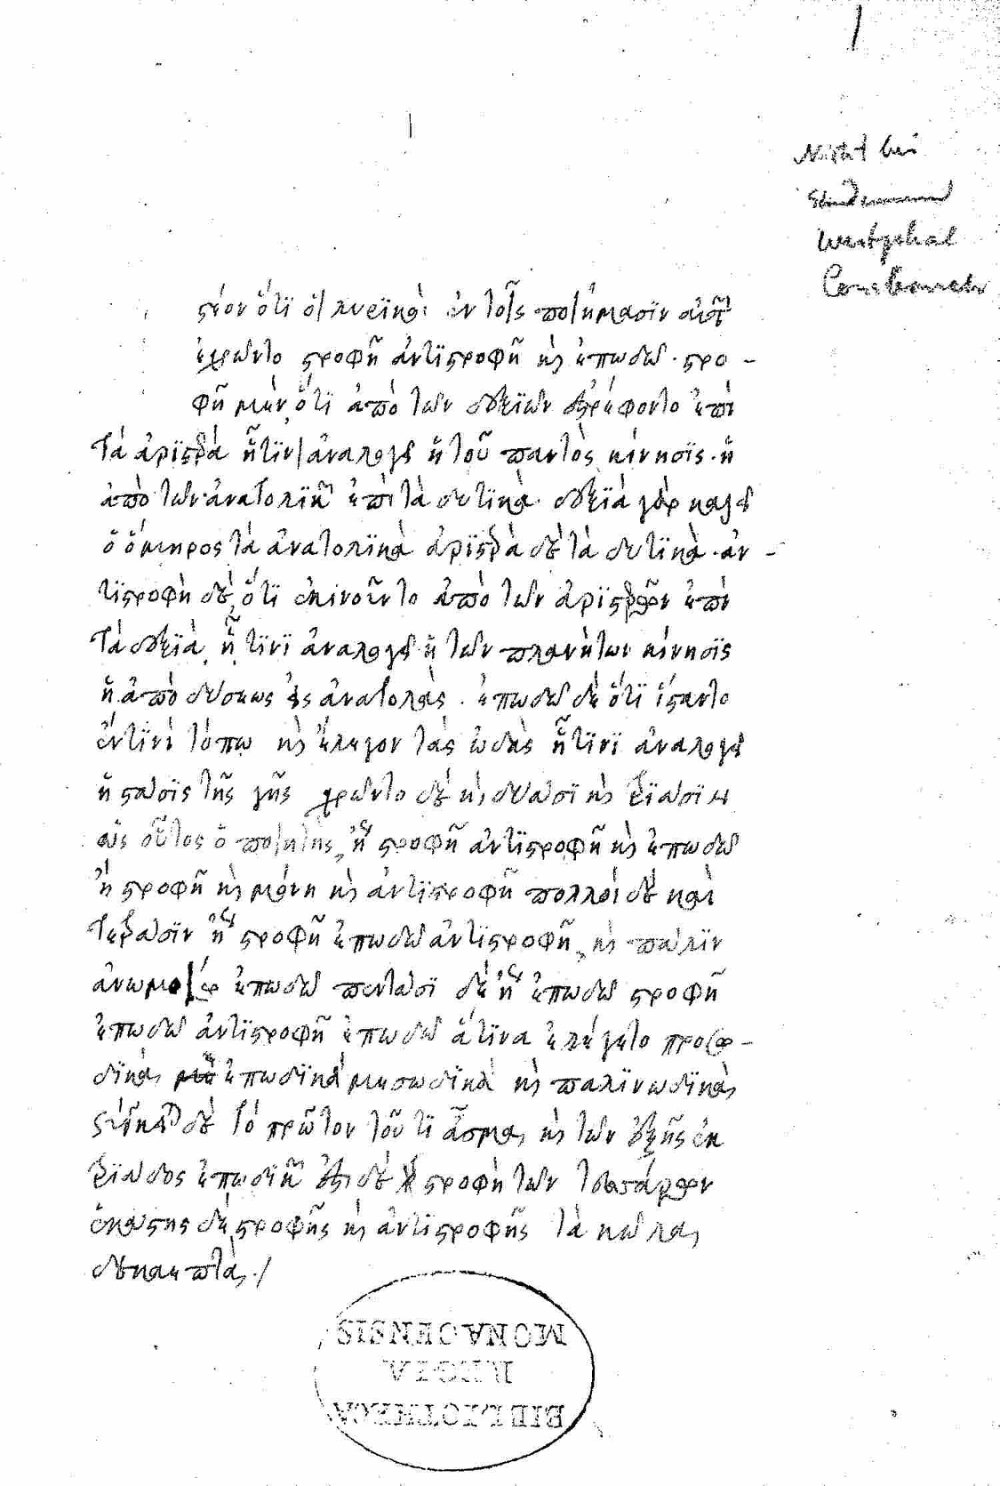 Nicht bei
Studemund
Westphal
Consbruch
στέον ὅτι οἱ λυρικοὶ ἐν τοῖς ποιήμασιν αὐτῶν
ἐχρῶντο στροφῇ ἀντιστροφῇ καὶ ἐπωδῷ · στρο-
φῇ μὲν ὅτι ἀπὸ τῶν δεξιῶν ἐστρέφοντο ἐπὶ
τὰ ἀριστερὰ ᾗτινι ἀναλογεῖ ἡ τοῦ παντὸς κίνησις · ἡ
ἀπὸ τῶν ἀνατολικῶν ἐπὶ τὰ δυτικά · δεξιὰ γὰρ καλεῖ
ὁ ὅμηρος τὰ ἀνατολικὰ ἀριστερὰ δὲ τὰ δυτικά · ἀν-
τιστροφὴ δὲ, ὅτι ἐκινοῦντο ἀπὸ τῶν ἀριστερῶν ἐπὶ
τὰ δεξιὰ, ᾗτινι ἀναλογεῖ ἡ τῶν πλανήτων κίνησις
ἡ ἀπὸ δύσεως εἰς ἀνατολάς · ἐπωδῷ δὲ ὅτι ἵσταντο
ἔν τινι τόπῳ καὶ ἔλεγον τὰς ὠδὰς ᾗτινι ἀναλογεῖ
ἡ στάσις τῆς γῆς χρῶντο δὲ καὶ, δυάσι καὶ τριάσιν
ὡς οὗτος ὁ ποιητὴς, ἢ στροφῇ ἀντιστροφῇ καὶ ἐπωδῷ
ἢ στροφῇ καὶ μόνῃ καὶ ἀντιστροφῇ πολλοὶ δὲ καὶ
τετράσιν ἢ στροφῇ ἐπωδῷ ἀντιστροφῇ, καὶ πάλιν
ἀνωμοίῳ ἐπωδῷ πεντάσι δὲ ἢ ἐπωδῷ στροφῇ
ἐπωδῷ ἀντιστροφῇ ἐπωδῷ ἅτινα ἐλέγετο προῳ-
δικὰ, ἐπωδικὰ μεσῳδικὰ καὶ παλινῳδικὰ,
δὲ τὸ πρῶτον τουτὶ ᾆσμα, καὶ τῶν ἑξῆς ἐκ
τριάδος ἐπωδικῆς ἔστι δὲ ἡ στροφὴ τῶν τεσσάρων
ἑκάστης δὲ στροφῆς καὶ ἀντιστροφῆς τὰ κῶλα,
δεκαεπτά ·/
BIBLIOTHECA
REGIA
MONACENSIS